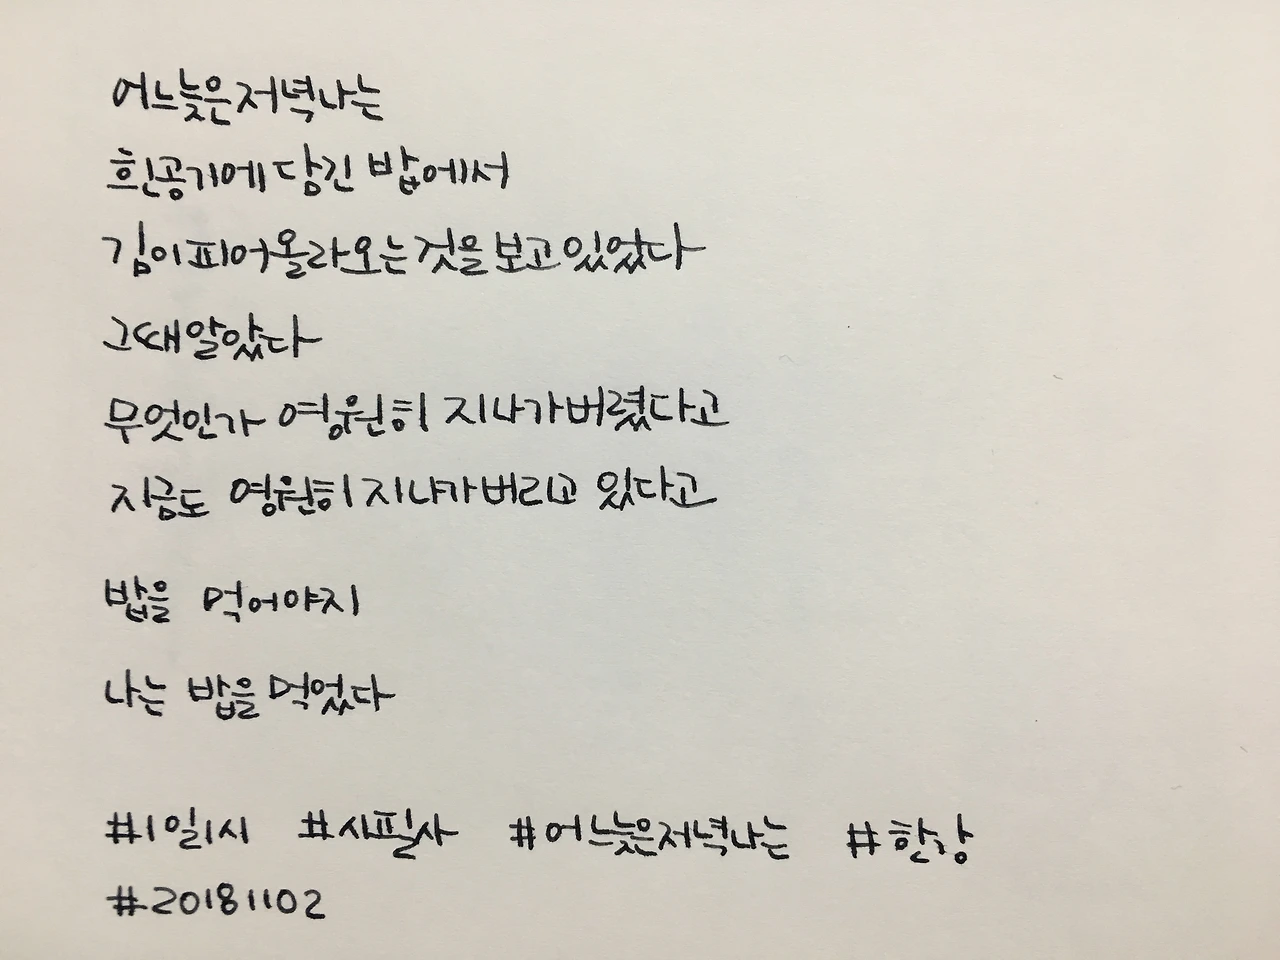 어느 늦은 저녁 나는
흰 공기에 담긴 밥에서
김이 피어 올라오는 것을 보고 있었다
그때 알았다
무엇인가 영원히 지나가버렸다고
지금도 영원히 지나가버리고 있다고
밥을 먹어야지
나는 밥을 먹었다
#1일1시 #시필사 #어느늦은저녁나는 #한강
#20181102